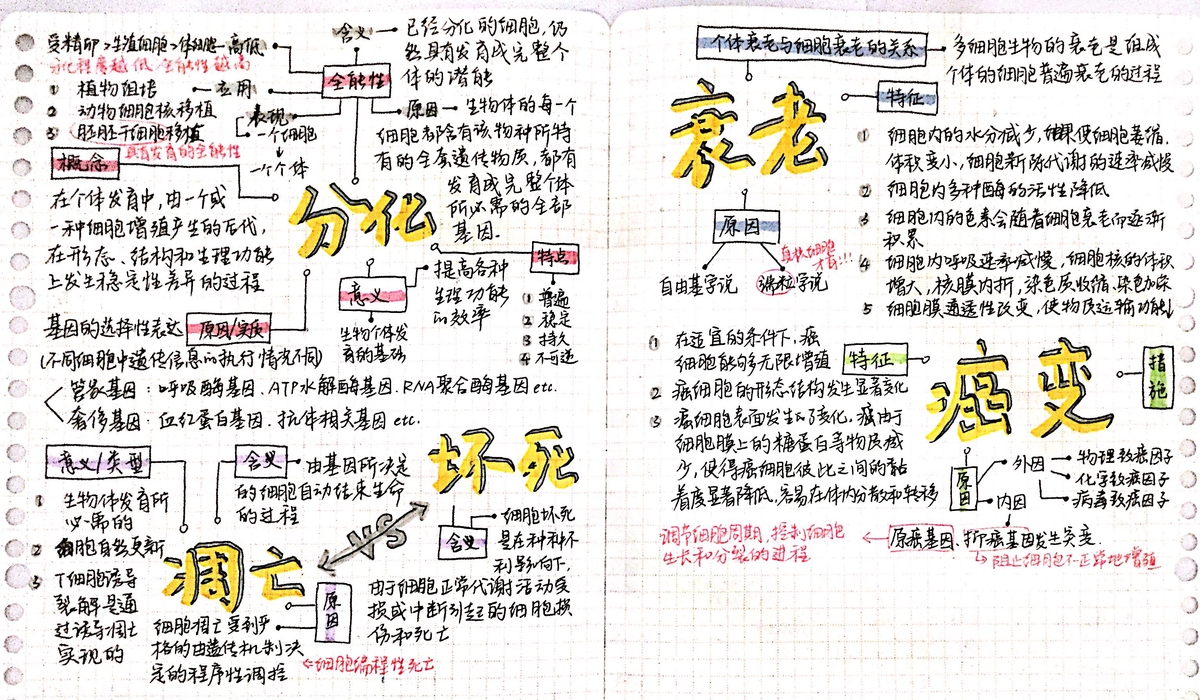 受精卵>生殖细胞>体细胞 — 高低
分化程度越低 全能性越高
① 植物组培 — 应用
② 动物细胞核移植
③ 胚胎干细胞移植
具有发育的全能性
全能性
含义 — 已经分化的细胞,仍
然具有发育成完整个
体的潜能
表现
一个细胞
↓
一个个体
原因 — 生物体的每一个
细胞都含有该物种所特
有的全套遗传物质,都有
发育成完整个体
所必需的全部
基因.
概念
在个体发育中,由一个或
一种细胞增殖产生的后代,
在形态、结构和生理功能
上发生稳定性差异的过程
分化
特点
1 普遍
2 稳定
3 持久
4 不可逆
意义
提高各种
生理功能
的效率
生物个体发
育的基础
基因的选择性表达 原因/实质
(不同细胞中遗传信息的执行情况不同)
管家基因:呼吸酶基因.ATP水解酶基因.RNA聚合酶基因etc.
奢侈基因·血红蛋白基因.抗体相关基因etc.
坏死
含义
细胞坏死
是在种种不
利影响下,
由于细胞正常代谢活动受
损或中断引起的细胞损
伤和死亡
VS
凋亡
意义/类型
1 生物体发育所
必需的
2 细胞自然更新
3 T细胞诱导
裂解是通
过诱导凋亡
实现的
含义
由基因所决定
的细胞自动结束生命
的过程
原因
细胞凋亡受到严
格的由遗传机制决
定的程序性调控
←细胞编程性死亡
个体衰老与细胞衰老的关系
多细胞生物的衰老是组成
个体的细胞普遍衰老的过程
衰老
特征
1 细胞内的水分减少,结果使细胞萎缩.
体积变小,细胞新陈代谢的速率减慢
2 细胞内多种酶的活性降低
3 细胞内的色素会随着细胞衰老而逐渐
积累
4 细胞内呼吸速率减慢,细胞核的体积
增大,核膜内折,染色质收缩.染色加深
5 细胞膜通透性改变,使物质运输功能↓
原因
自由基学说
端粒学说
真核细胞
才有!!!
癌变
措施
特征
① 在适宜的条件下,癌
细胞能够无限增殖
2 癌细胞的形态结构发生显著变化
3 癌细胞表面发生了变化,癌由于
细胞膜上的糖蛋白等物质减
少,使得癌细胞彼此之间的黏
着度显著降低.容易在体内分散和转移
原因
外因
物理致癌因子
化学致癌因子
病毒致癌因子
内因
原癌基因、抑癌基因发生突变.
调节细胞周期,控制细胞
生长和分裂的过程
阻止细胞不正常地增殖